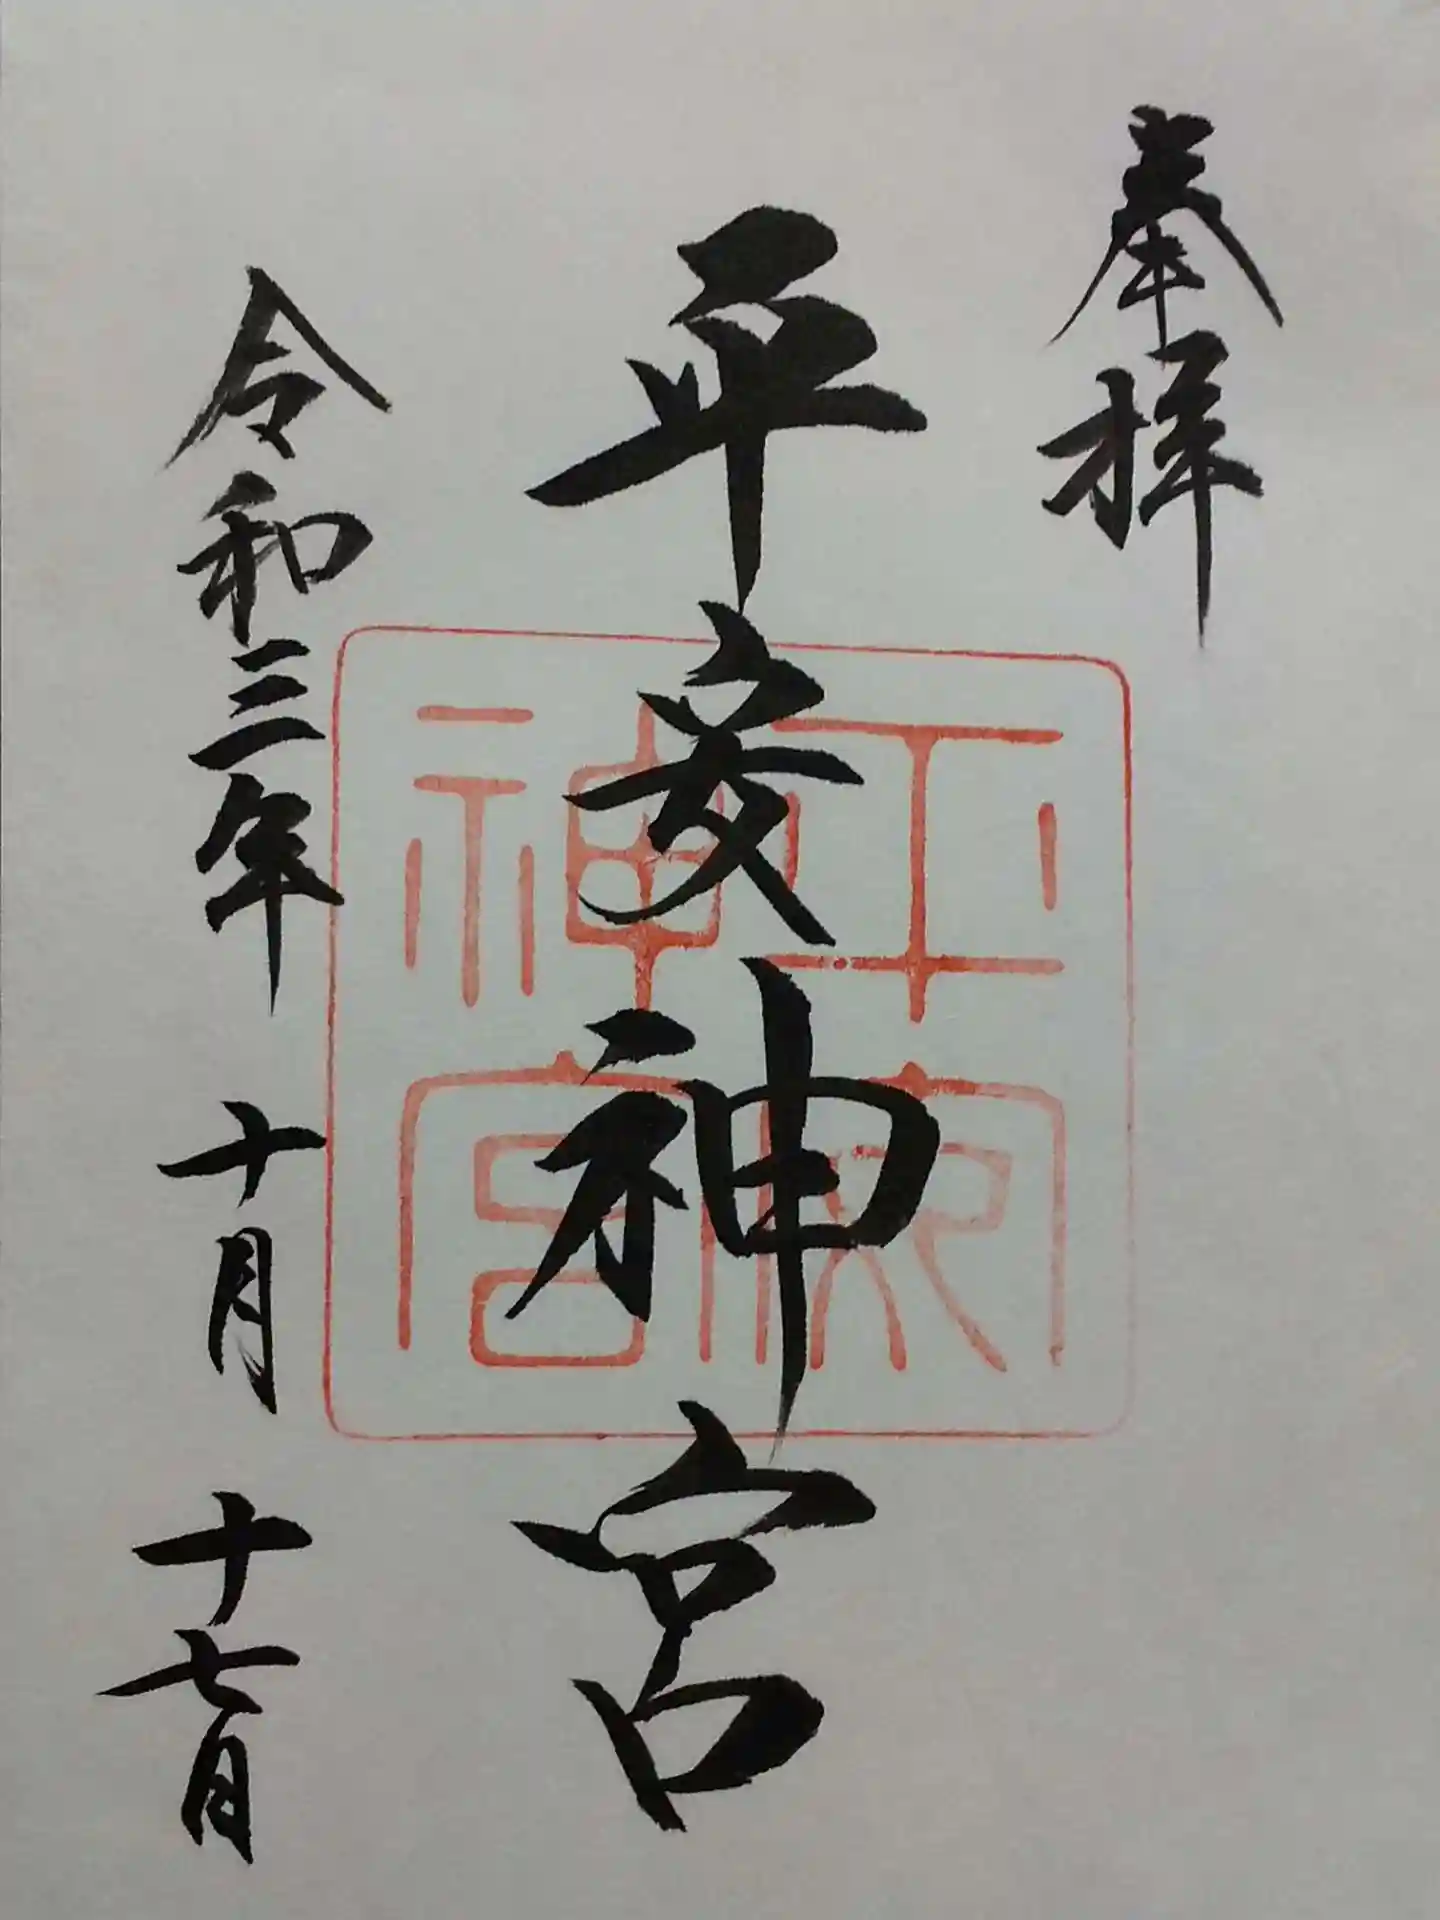 奉拝
平安神宮
平安神宮
令和三年 十月 十七日